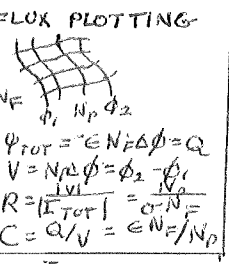 FLUX PLOTTING
N_F
ϕ₁ N_P ϕ₂
Ψ_TOT = ϵ N_F Δϕ = Q
V = N_P Δϕ = ϕ₂ - ϕ₁
R = |V| / |I_TOT| = N_P / σ N_F
C = Q/V = ϵ N_F / N_P